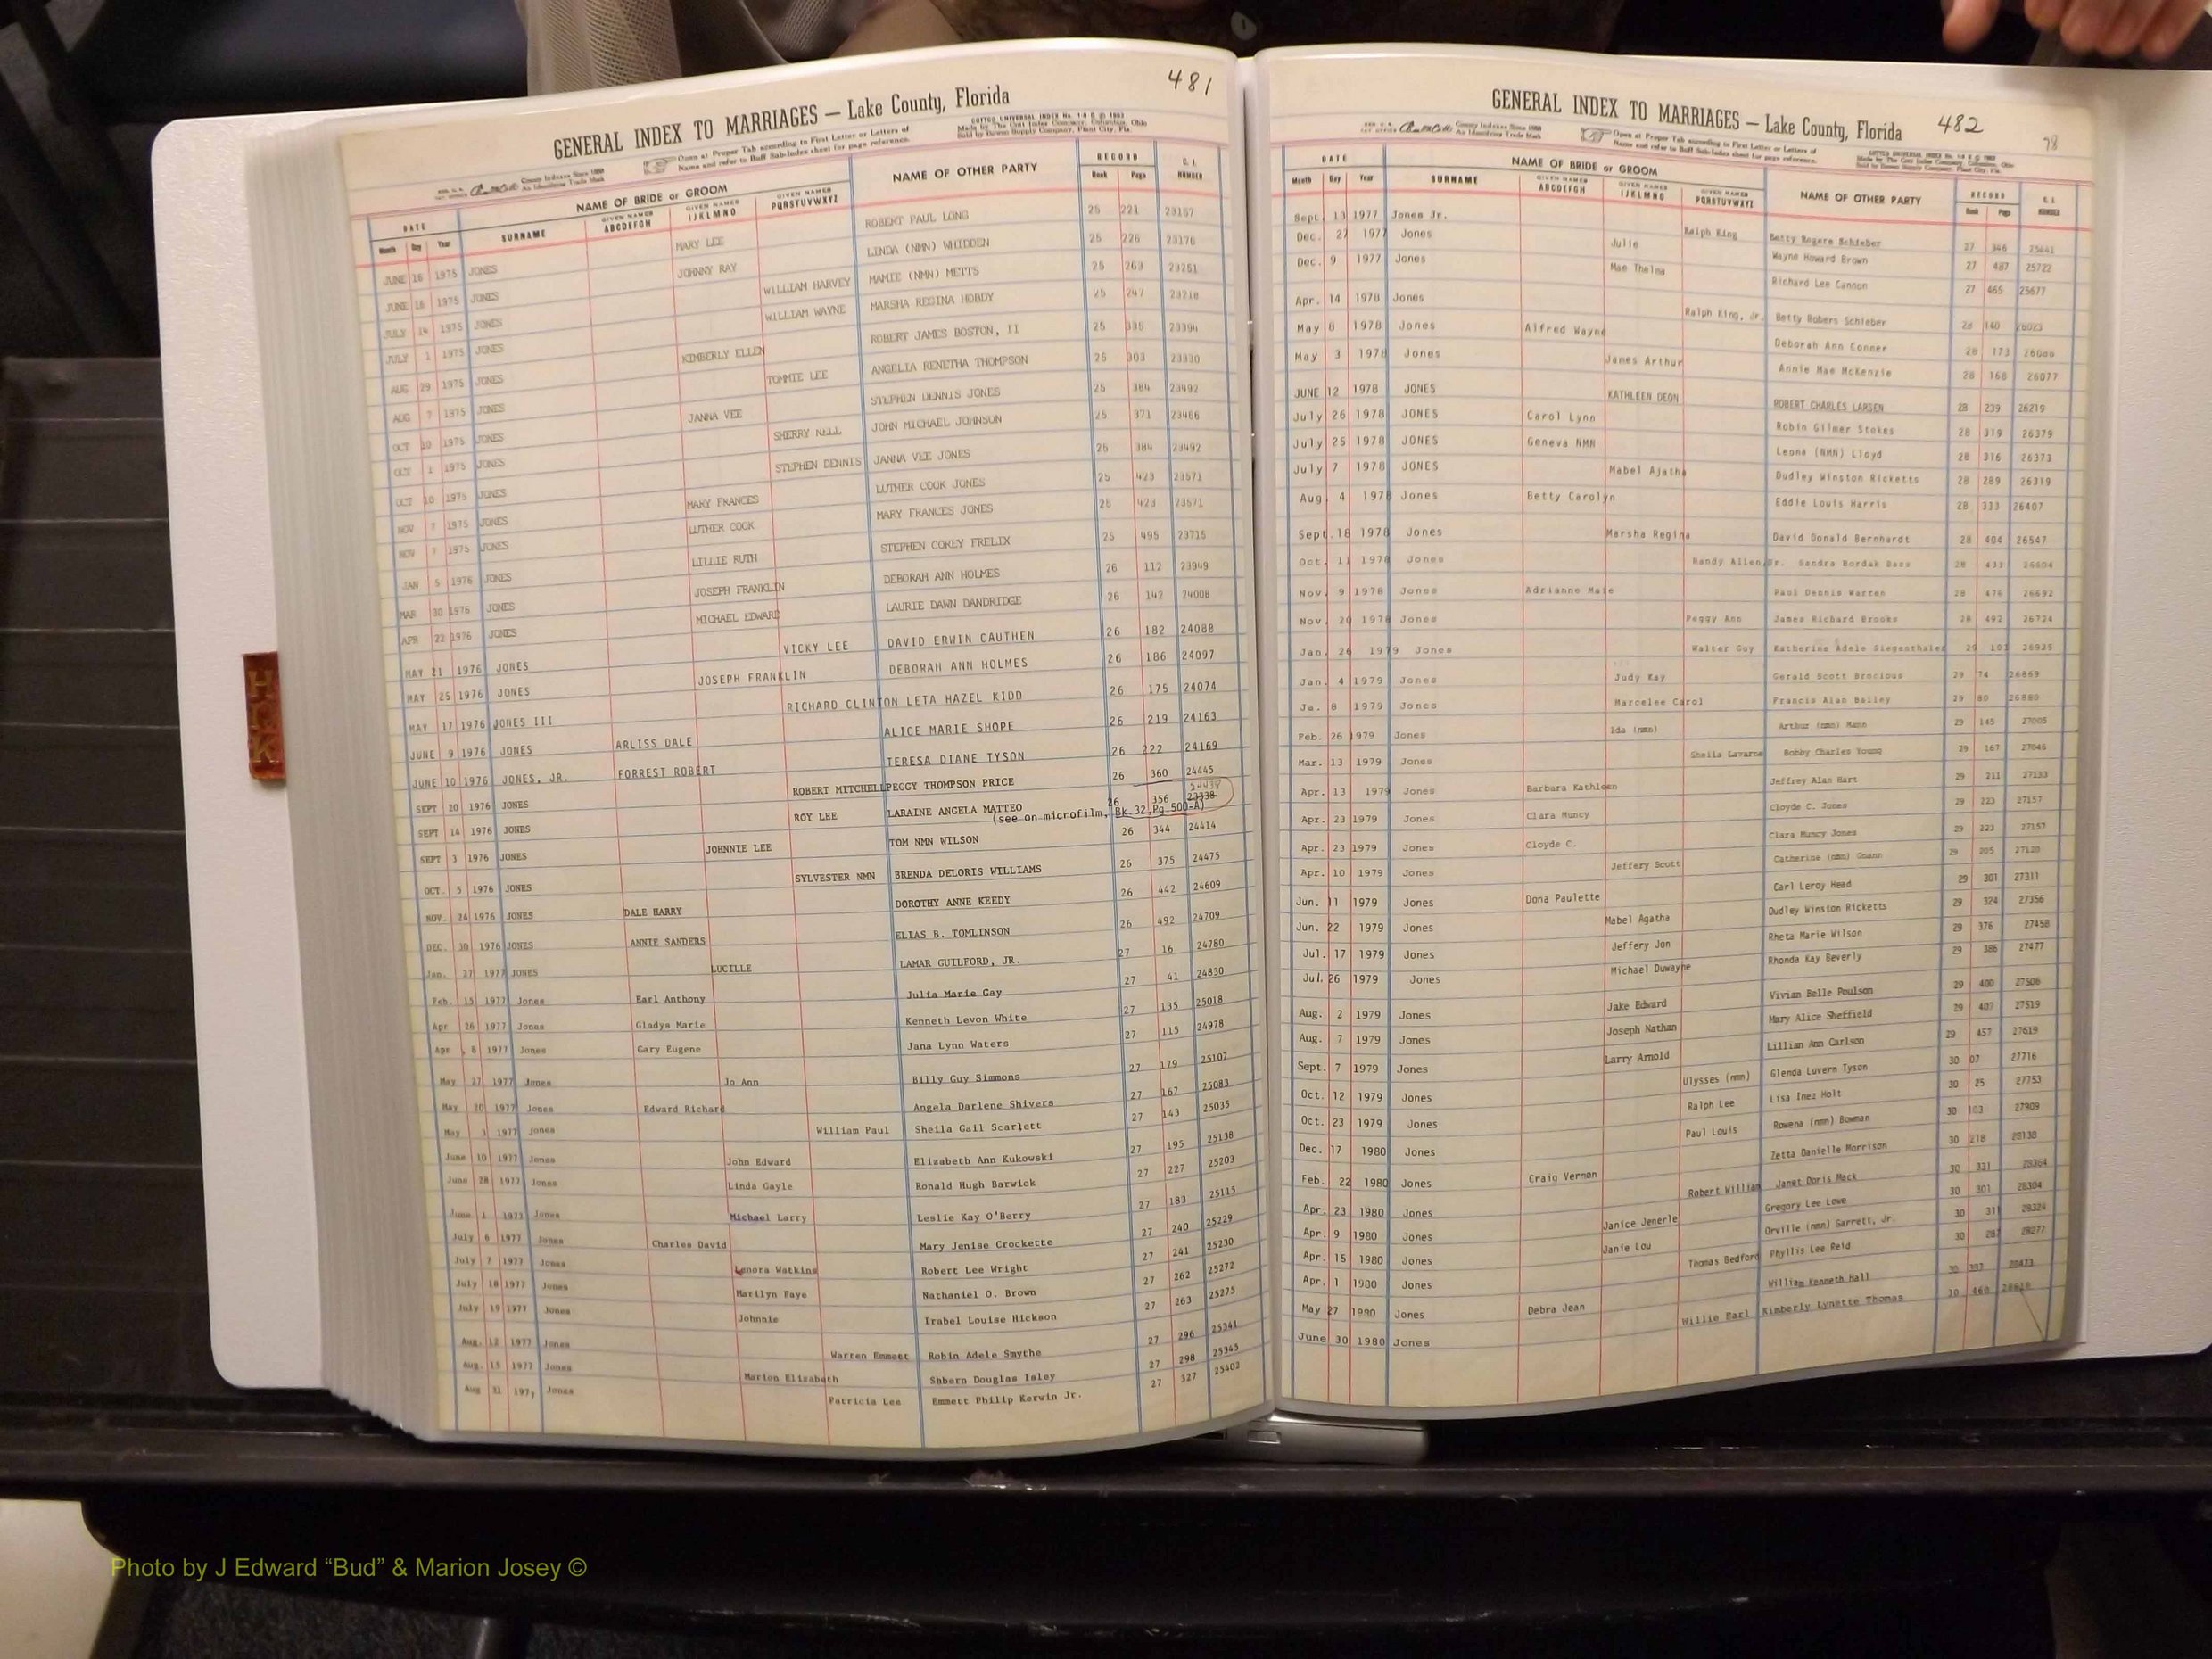 481
GENERAL INDEX TO MARRIAGES — Lake County, Florida
Open at Proper Tab according to First Letter or Letters of
Name and refer to Buff Sub-Index sheet for page reference.
COTT'S UNIVERSAL INDEX
Made by The Cott Index Company, Columbus, Ohio
Sold by Bowen Supply Company, Plant City, Fla.
County Indexes Since 1888
An Identifying Trade Mark
DATE NAME OF BRIDE or GROOM NAME OF OTHER PARTY RECORD
Month Day Year SURNAME GIVEN NAMES ABCDEFGH GIVEN NAMES IJKLMNO GIVEN NAMES PQRSTUVWXYZ Book Page NUMBER
JUNE 16 1975 JONES MARY LEE ROBERT PAUL LONG 25 221 23167
JUNE 18 1975 JONES JOHNNY RAY LINDA (NMN) WHIDDEN 25 226 23176
JULY 14 1975 JONES WILLIAM HARVEY MAMIE (NMN) METTS 25 263 23251
JULY 1 1975 JONES WILLIAM WAYNE MARSHA REGINA HOBDY 25 247 23218
AUG 29 1975 JONES KIMBERLY ELLEN ROBERT JAMES BOSTON, II 25 335 23394
AUG 7 1975 JONES TOMMIE LEE ANGELIA RENETHA THOMPSON 25 303 23330
OCT 10 1975 JONES JANNA VEE STEPHEN DENNIS JONES 25 384 23492
OCT 1 1975 JONES SHERRY NELL JOHN MICHAEL JOHNSON 25 371 23466
OCT 10 1975 JONES STEPHEN DENNIS JANNA VEE JONES 25 384 23492
NOV 7 1975 JONES MARY FRANCES LUTHER COOK JONES 25 423 23571
NOV 7 1975 JONES LUTHER COOK MARY FRANCES JONES 25 423 23571
JAN 5 1976 JONES LILLIE RUTH STEPHEN CORLY FRELIX 25 495 23715
MAR 30 1976 JONES JOSEPH FRANKLIN DEBORAH ANN HOLMES 26 112 23949
APR 22 1976 JONES MICHAEL EDWARD LAURIE DAWN DANDRIDGE 26 142 24008
MAY 21 1976 JONES VICKY LEE DAVID ERWIN CAUTHEN 26 182 24088
MAY 25 1976 JONES JOSEPH FRANKLIN DEBORAH ANN HOLMES 26 186 24097
MAY 17 1976 JONES III RICHARD CLINTON LETA HAZEL KIDD 26 175 24074
JUNE 9 1976 JONES ARLISS DALE ALICE MARIE SHOPE 26 219 24163
JUNE 10 1976 JONES, JR. FORREST ROBERT TERESA DIANE TYSON 26 222 24169
SEPT 20 1976 JONES ROBERT MITCHELL PEGGY THOMPSON PRICE 26 360 24445
SEPT 14 1976 JONES ROY LEE LARAINE ANGELA MATTEO 26 356 23338 24438
(see on microfilm, Bk.32,Pg.500-A)
SEPT 3 1976 JONES JOHNNIE LEE TOM NMN WILSON 26 344 24414
OCT. 5 1976 JONES SYLVESTER NMN BRENDA DELORIS WILLIAMS 26 375 24475
NOV. 24 1976 JONES DALE HARRY DOROTHY ANNE KEEDY 26 442 24609
DEC. 30 1976 JONES ANNIE SANDERS ELIAS B. TOMLINSON 26 492 24709
Jan. 27 1977 JONES LUCILLE LAMAR GUILFORD, JR. 27 16 24780
Feb. 15 1977 Jones Earl Anthony Julia Marie Gay 27 41 24830
Apr 26 1977 Jones Gladys Marie Kenneth Levon White 27 135 25018
Apr 8 1977 Jones Gary Eugene Jana Lynn Waters 27 115 24978
May 27 1977 Jones Jo Ann Billy Guy Simmons 27 179 25107
May 20 1977 Jones Edward Richard Angela Darlene Shivers 27 167 25083
May 3 1977 Jones William Paul Sheila Gail Scarlett 27 143 25035
June 10 1977 Jones John Edward Elizabeth Ann Kukowski 27 195 25138
June 28 1977 Jones Linda Gayle Ronald Hugh Barwick 27 227 25203
June 1 1977 Jones Michael Larry Leslie Kay O'Berry 27 183 25115
July 6 1977 Jones Charles David Mary Jenise Crockette 27 240 25229
July 7 1977 Jones Lenora Watkins Robert Lee Wright 27 241 25230
July 18 1977 Jones Marilyn Faye Nathaniel O. Brown 27 262 25272
July 19 1977 Jones Johnnie Irabel Louise Hickson 27 263 25275
Aug. 12 1977 Jones Warren Emmett Robin Adele Smythe 27 296 25341
Aug. 15 1977 Jones Marion Elizabeth Shbern Douglas Isley 27 298 25345
Aug 31 1977 Jones Patricia Lee Emmett Philip Kerwin Jr. 27 327 25402
GENERAL INDEX TO MARRIAGES — Lake County, Florida 482
98
Open at Proper Tab according to First Letter or Letters of
Name and refer to Buff Sub-Index sheet for page reference.
DATE NAME OF BRIDE or GROOM NAME OF OTHER PARTY RECORD
Month Day Year SURNAME GIVEN NAMES ABCDEFGH GIVEN NAMES IJKLMNO GIVEN NAMES PQRSTUVWXYZ Book Page NUMBER
Sept 13 1977 Jones Jr. Ralph King Betty Rogers Schieber 27 346 25441
Dec. 27 1977 Jones Julie Wayne Howard Brown 27 487 25722
Dec. 9 1977 Jones Mae Thelma Richard Lee Cannon 27 465 25677
Apr. 14 1978 Jones Ralph King, Jr. Betty Robers Schieber 28 140 26023
May 8 1978 Jones Alfred Wayne Deborah Ann Conner 28 173 26086
May 3 1978 Jones James Arthur Annie Mae McKenzie 28 168 26077
JUNE 12 1978 JONES KATHLEEN DEON ROBERT CHARLES LARSEN 28 239 26219
July 26 1978 JONES Carol Lynn Robin Gilmer Stokes 28 319 26379
July 25 1978 JONES Geneva NMN Leona (NMN) Lloyd 28 316 26373
July 7 1978 JONES Mabel Ajatha Dudley Winston Ricketts 28 289 26319
Aug. 4 1978 Jones Betty Carolyn Eddie Louis Harris 28 333 26407
Sept. 18 1978 Jones Marsha Regina David Donald Bernhardt 28 404 26547
Oct. 11 1978 Jones Randy Allen, Sr. Sandra Bordak Bass 28 433 26604
Nov. 9 1978 Jones Adrianne Maie Paul Dennis Warren 28 476 26692
Nov. 20 1978 Jones Peggy Ann James Richard Brooks 28 492 26724
Jan. 26 1979 Jones Walter Guy Katherine Adele Siegenthaler 29 101 26925
Jan. 4 1979 Jones Judy Kay Gerald Scott Brocious 29 74 26869
Ja. 8 1979 Jones Marcelee Carol Francis Alan Bailey 29 80 26880
Feb. 26 1979 Jones Ida (nmn) Arthur (nmn) Mann 29 145 27005
Mar. 13 1979 Jones Sheila Lavarne Bobby Charles Young 29 167 27046
Apr. 13 1979 Jones Barbara Kathleen Jeffrey Alan Hart 29 211 27133
Apr. 23 1979 Jones Clara Muncy Cloyde C. Jones 29 223 27157
Apr. 23 1979 Jones Cloyde C. Clara Muncy Jones 29 223 27157
Apr. 10 1979 Jones Jeffery Scott Catherine (nmn) Gnann 29 205 27120
Jun. 11 1979 Jones Dona Paulette Carl Leroy Head 29 301 27311
Jun. 22 1979 Jones Mabel Agatha Dudley Winston Ricketts 29 324 27356
Jul. 17 1979 Jones Jeffery Jon Rheta Marie Wilson 29 376 27458
Jul. 26 1979 Jones Michael Duwayne Rhonda Kay Beverly 29 386 27477
Aug. 2 1979 Jones Jake Edward Vivian Belle Poulson 29 400 27506
Aug. 7 1979 Jones Joseph Nathan Mary Alice Sheffield 29 407 27519
Sept. 7 1979 Jones Larry Arnold Lillian Ann Carlson 29 457 27619
Oct. 12 1979 Jones Ulysses (nmn) Glenda Luvern Tyson 30 07 27716
Oct. 23 1979 Jones Ralph Lee Lisa Inez Holt 30 25 27753
Dec. 17 1980 Jones Paul Louis Rowena (nmn) Bowman 30 103 27909
Feb. 22 1980 Jones Craig Vernon Zetta Danielle Morrison 30 218 28138
Apr. 23 1980 Jones Robert William Janet Doris Mack 30 331 28364
Apr. 9 1980 Jones Janice Jenerle Gregory Lee Love 30 301 28304
Apr. 15 1980 Jones Janie Lou Orville (nmn) Garrett, Jr. 30 311 28324
Apr. 1 1980 Jones Thomas Bedford Phyllis Lee Reid 30 287 28277
May 27 1980 Jones Debra Jean William Kenneth Hall 30 28473
June 30 1980 Jones Willie Earl Kimberly Lynette Thomas 30 460
H
I
K
Photo by J Edward “Bud” & Marion Josey ©